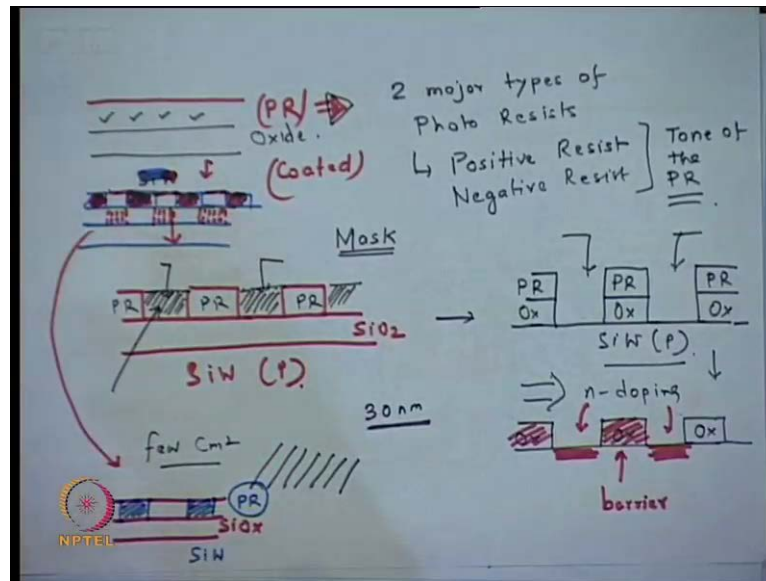 (PR)
Oxide.
(Coated)
2 major types of
Photo Resists
↳ Positive Resist
Negative Resist
Tone of
the
PR
Mask
PR
PR
PR
SiO2
SiW (P).
PR
PR
PR
Ox
Ox
Ox
SiW (P).
⇒ n-doping
Ox
barrier
30nm
few Cm2
PR
SiOx
SiW
NPTEL